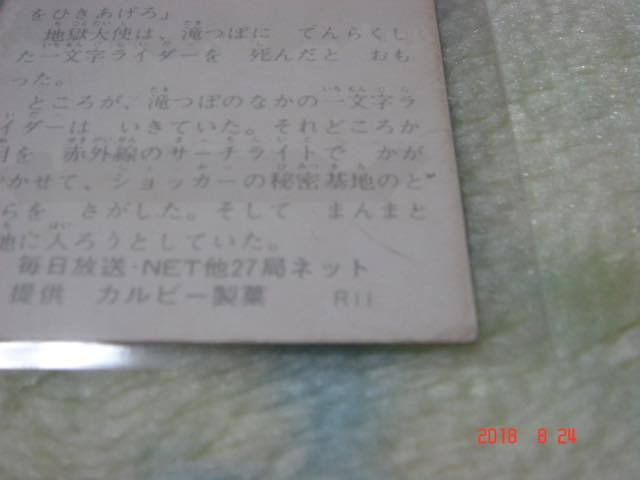 をひきあげろ」
地獄大使は、滝つぼに てんらくし
た一文字ライダーを 死んだと おも
った。
ところが、滝つぼのなかの一文字ラ
イダーは いきていた。それどころか
目を 赤外線のサーチライトで かが
やかせて、ショッカーの秘密基地のと
らを さがした。そして まんまと
地に入ろうとしていた。
毎日放送・NET他27局ネット
提供 カルビー製菓 R11
2018 8 24